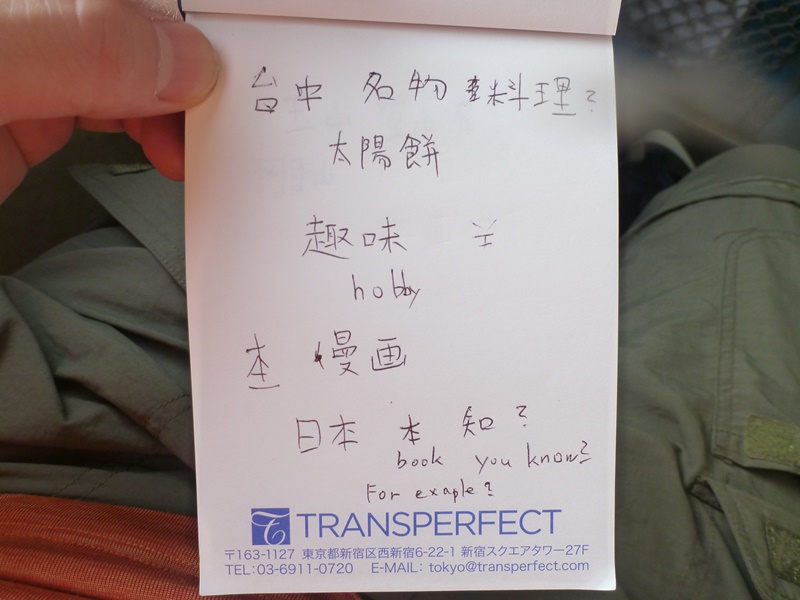 台中 名物 料理?
太陽餅
趣味
hobby
本 慢画
日本 本 知?
book you know?
For exaple?
TRANSPERFECT
〒163-1127 東京都新宿区西新宿6-22-1 新宿スクエアタワー27F
TEL:03-6911-0720 E-MAIL: tokyo@transperfect.com